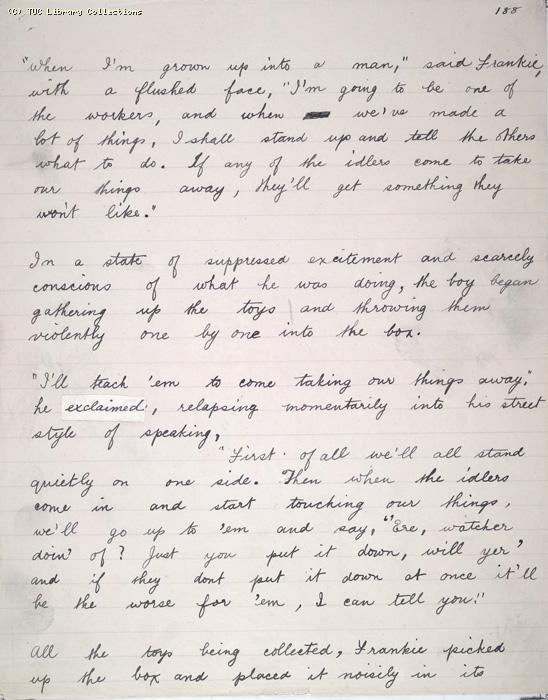 (C) TUC Library Collections
188
"When I'm grown up into a man," said Frankie,
with a flushed face, "I'm going to be one of
the workers, and when we've made a
lot of things, I shall stand up and tell the others
what to do. If any of the idlers come to take
our things away, they'll get something they
won't like."
In a state of suppressed excitement and scarcely
conscious of what he was doing, the boy began
gathering up the toys and throwing them
violently one by one into the box.
"I'll teach 'em to come taking our things away,"
he exclaimed, relapsing momentarily into his street
style of speaking,
"First of all we'll all stand
quietly on one side. Then when the idlers
come in and start touching our things,
we'll go up to 'em and say, "'Ere, watcher
doin' of? Just you put it down, will yer'
and if they dont put it down at once it'll
be the worse for 'em, I can tell you."
All the toys being collected, Frankie picked
up the box and placed it noisily in its